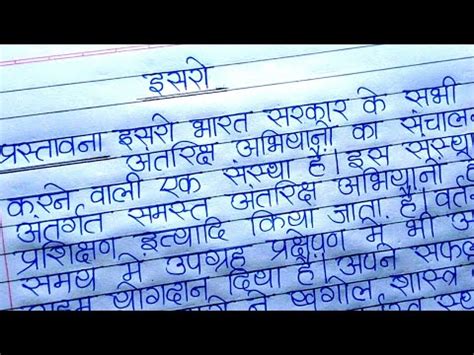 इसरो
प्रस्तावना इसरो भारत सरकार के सभी
अंतरिक्ष अभियानों का संचालन
करने वाली एक संस्था है। इस संस्था
अंतर्गत समस्त अंतरिक्ष अभियानों
प्रशिक्षण इत्यादि किया जाता है। वर्त
समय में उपग्रह प्रक्षेपण में भी
योगदान दिया है। अपने सफल
ने खगोल शास्त्र